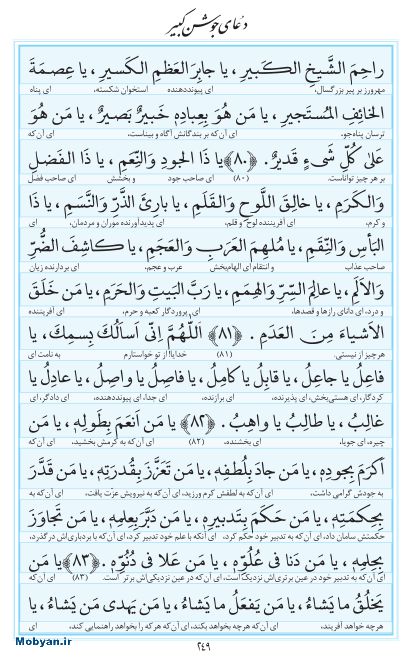 دعای جوشن کبیر
راحِمَ الشَّیخِ الکَبیرِ، یا جابِرَ العَظمِ الکَسیرِ، یا عِصمَةَ
مهرورز بر پیر بزرگسال، ای پیونددهنده استخوان شکسته، ای پناه
الخائِفِ المُستَجیرِ، یا مَن هُوَ بِعِبادِهٖ خَبیرٌ بَصیرٌ، یا مَن هُوَ
ترسان پناه‌جو، ای آن‌که بر بندگانش آگاه و بیناست، ای آن‌که
عَلیٰ کُلِّ شَیءٍ قَدیرٌ. ﴿۸۰﴾ یا ذَا الجودِ وَالنِّعَمِ، یا ذَا الفَضلِ
بر هر چیز تواناست. (۸۰) ای صاحب جود و بخشش ای صاحب فضل
وَالکَرَمِ، یا خالِقَ اللَّوحِ وَالقَلَمِ، یا بارِئَ الذَّرِّ وَالنَّسَمِ، یا ذَا
و کرم، ای آفریننده لوح و قلم، ای پدیدآورنده موران و مردمان، ای
البَأسِ وَالنِّقَمِ، یا مُلهِمَ العَرَبِ وَالعَجَمِ، یا کاشِفَ الضُّرِّ
صاحب عذاب و انتقام ای الهام‌بخش عرب و عجم، ای بردارنده زیان
وَالاَلَمِ، یا عالِمَ السِّرِّ وَالهِمَمِ، یا رَبَّ البَیتِ وَالحَرَمِ، یا مَن خَلَقَ
و درد، ای دانای رازها و قصدها، ای پروردگار کعبه و حرم، ای آفریننده
الاَشیاءَ مِنَ العَدَمِ. ﴿۸۱﴾ اَللّٰهُمَّ اِنّی اَسأَلُکَ بِسمِکَ، یا
هرچیز از نیستی. (۸۱) خدایا! از تو خواستارم به نامت ای
فاعِلُ یا جاعِلُ، یا قابِلُ یا کامِلُ، یا فاصِلُ یا واصِلُ، یا عادِلُ یا
کردگار، ای هستی‌بخش، ای پذیرنده، ای برازنده، ای جدا، ای پیونددهنده، ای دادگر، ای
غالِبُ، یا طالِبُ یا واهِبُ. ﴿۸۲﴾ یا مَن اَنعَمَ بِطَولِهٖ، یا مَن
چیره، ای جویا، ای بخشنده، (۸۲) ای آن‌که به کرمش بخشید، ای آن‌که
اَکرَمَ بِجودِهٖ، یا مَن جادَ بِلُطفِهٖ، یا مَن تَعَزَّزَ بِقُدرَتِهٖ، یا مَن قَدَّرَ
به جودش گرامی داشت، ای آن‌که به لطفش کرم ورزید، ای آن‌که به نیرویش عزت یافت، ای آن‌که به
بِحِکمَتِهٖ، یا مَن حَکَمَ بِتَدبیرِهٖ، یا مَن دَبَّرَ بِعِلمِهٖ، یا مَن تَجاوَزَ
حکمتش سامان داد، ای آن‌که به تدبیر خود حکم کرد، ای آنکه با علم خود تدبیر کرد، ای آن‌که با بردباری‌اش درگذرد،
بِحِلمِهٖ، یا مَن دَنا فی عُلُوِّهٖ، یا مَن عَلا فی دُنُوِّهٖ. ﴿۸۳﴾ یا مَن
ای آن‌که به تدبیر خود در عین برتری‌اش نزدیک است، ای آن‌که در عین نزدیکی‌اش برتر است. (۸۳) ای آن‌که
یَخلُقُ ما یَشاءُ، یا مَن یَفعَلُ ما یَشاءُ، یا مَن یَهدی مَن یَشاءُ، یا
هرچه خواهد آفریند، ای آن‌که هرچه بخواهد بکند، ای آن‌که هر که را بخواهد راهنمایی کند، ای
۲۴۹
Mobyan.ir